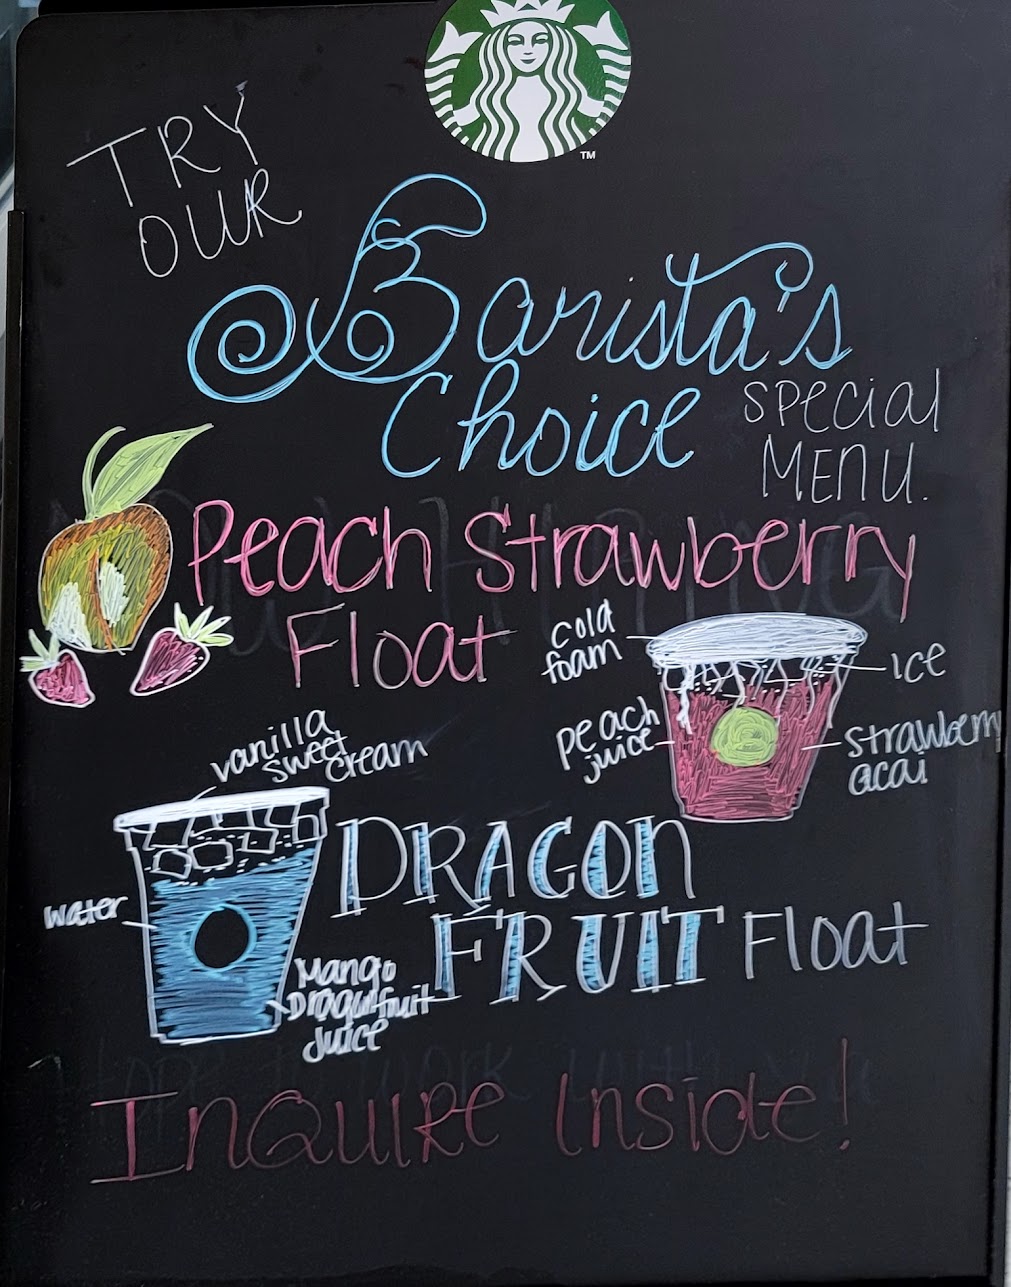 TM
TRY
OUR
Barista's
Choice
SPecial
MENU.
Peach Strawberry
Float
Cold
foam
ice
peach
juice
strawberry
acai
vanilla
sweet
cream
DRAGON
FRUIT Float
water
Mango
Dragonfruit
Juice
Hope to work with you
INQUIRE Inside!